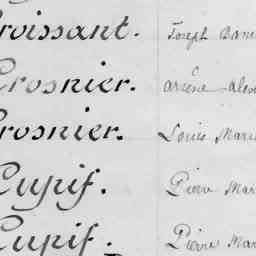 Croissant. Joseph
Crosnier. Arsène
Crosnier. Louis Marie
Cupif. Pierre Mar
Cupif. Pierre Mar